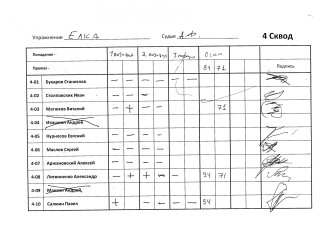 Упражнение Елка Судья А.Ф. 4 Сквод
Попадание - 1 2 3
Промах - 54 71 Подпись
4-01 Бухаров Станислав — — — — —
4-02 Столповских Иван — — —
4-03 Матюхов Виталий — + — — 71
4-04 Андрей
4-05 Кузнецов Евгений — — — — —
4-06 Маслов Сергей — — — — —
4-07 Аржановский Алексей — — — — —
4-08 Литвиненко Александр — + + — — — 54 71
4-09 Андрей
4-10 Салкин Павел + — — — — 54